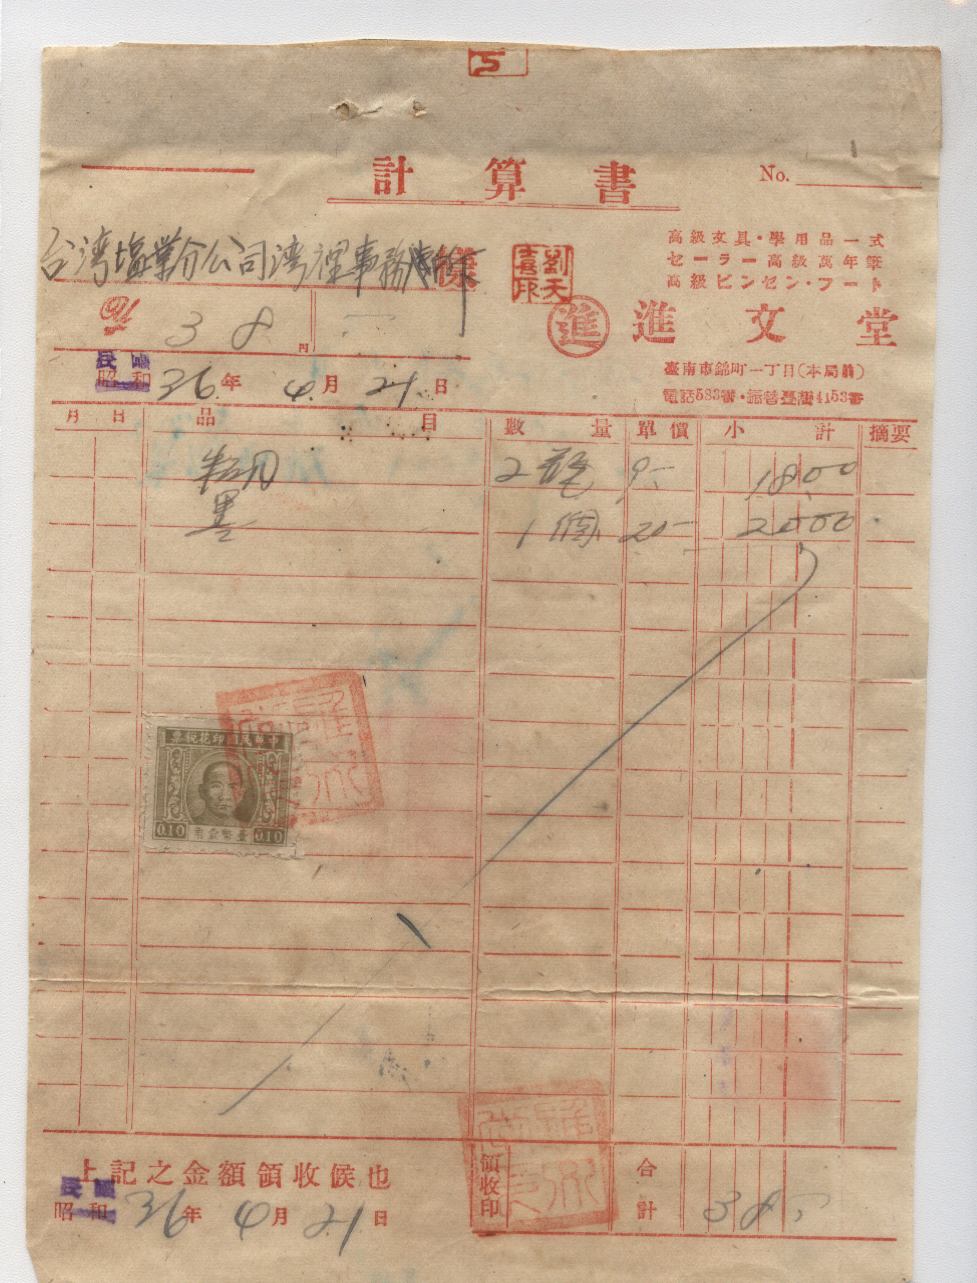 5
計算書
No.
台湾塩業分公司湾裡事務所 樣
劉天喜印
高級文具・學用品一式
セーラー高級萬年筆
高級ビンセン・フート
38 円
進 進文堂
臺南市錦町一丁目(本局前)
電話583番・振替臺湾4153番
民國 昭和 36年 4月21日
月 日 品目 數量 單價 小計 摘要
2 9.- 18.00
墨 1個 20- 2000
中華民國印花稅票
0.10 臺幣壹角 0.10
上記之金額領收候也
領收印
合計 38.-
民國 昭和 36年 4月21日